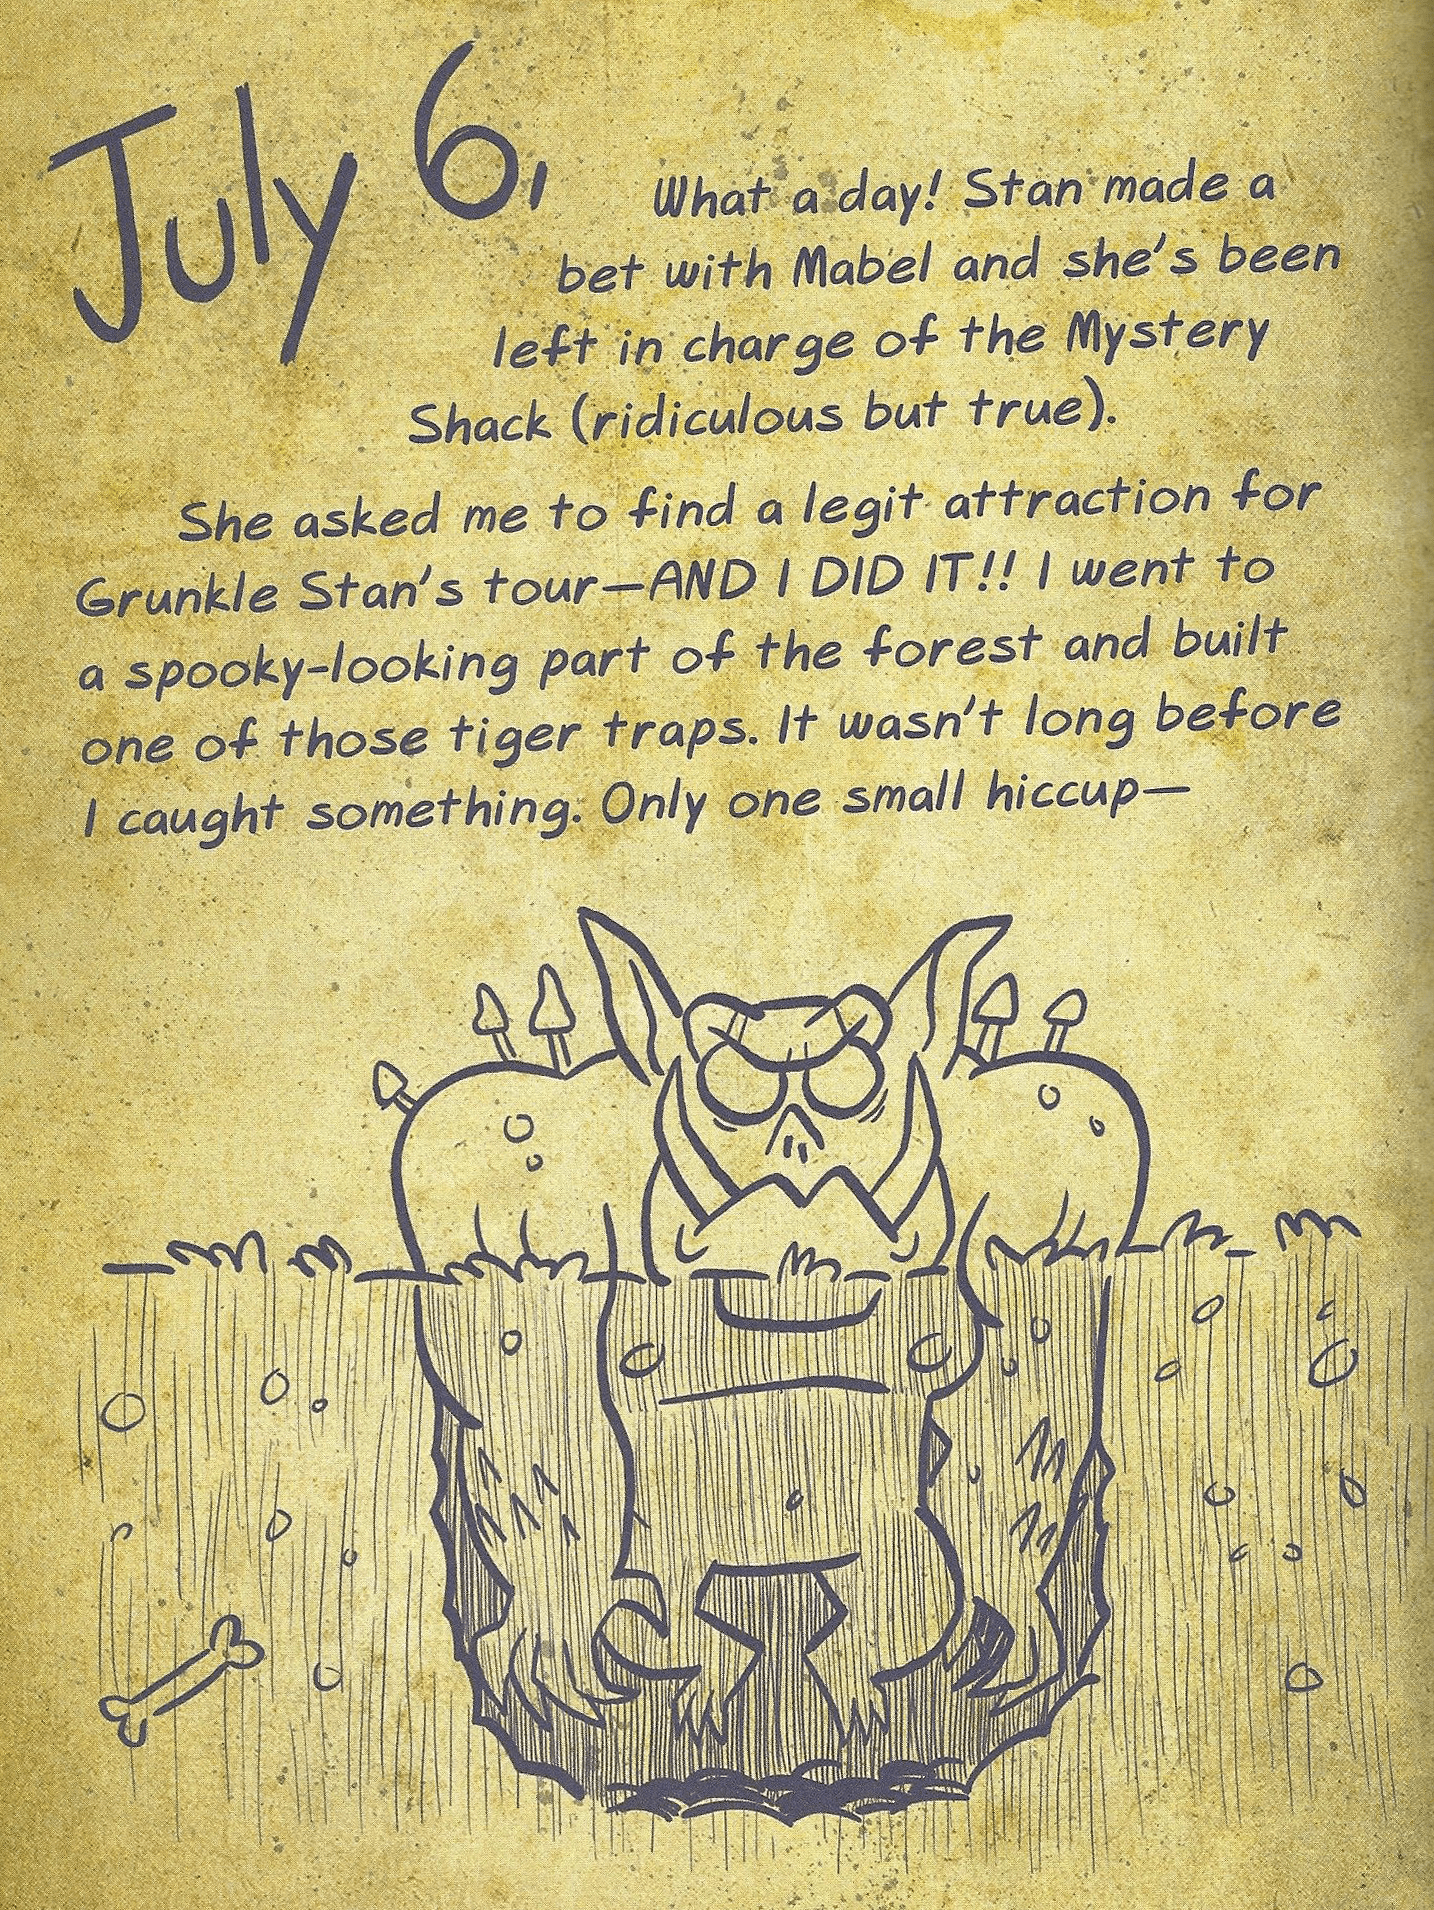 July 6,
What a day! Stan made a
bet with Mabel and she's been
left in charge of the Mystery
Shack (ridiculous but true).
She asked me to find a legit attraction for
Grunkle Stan's tour—AND I DID IT!! I went to
a spooky-looking part of the forest and built
one of those tiger traps. It wasn't long before
I caught something. Only one small hiccup—